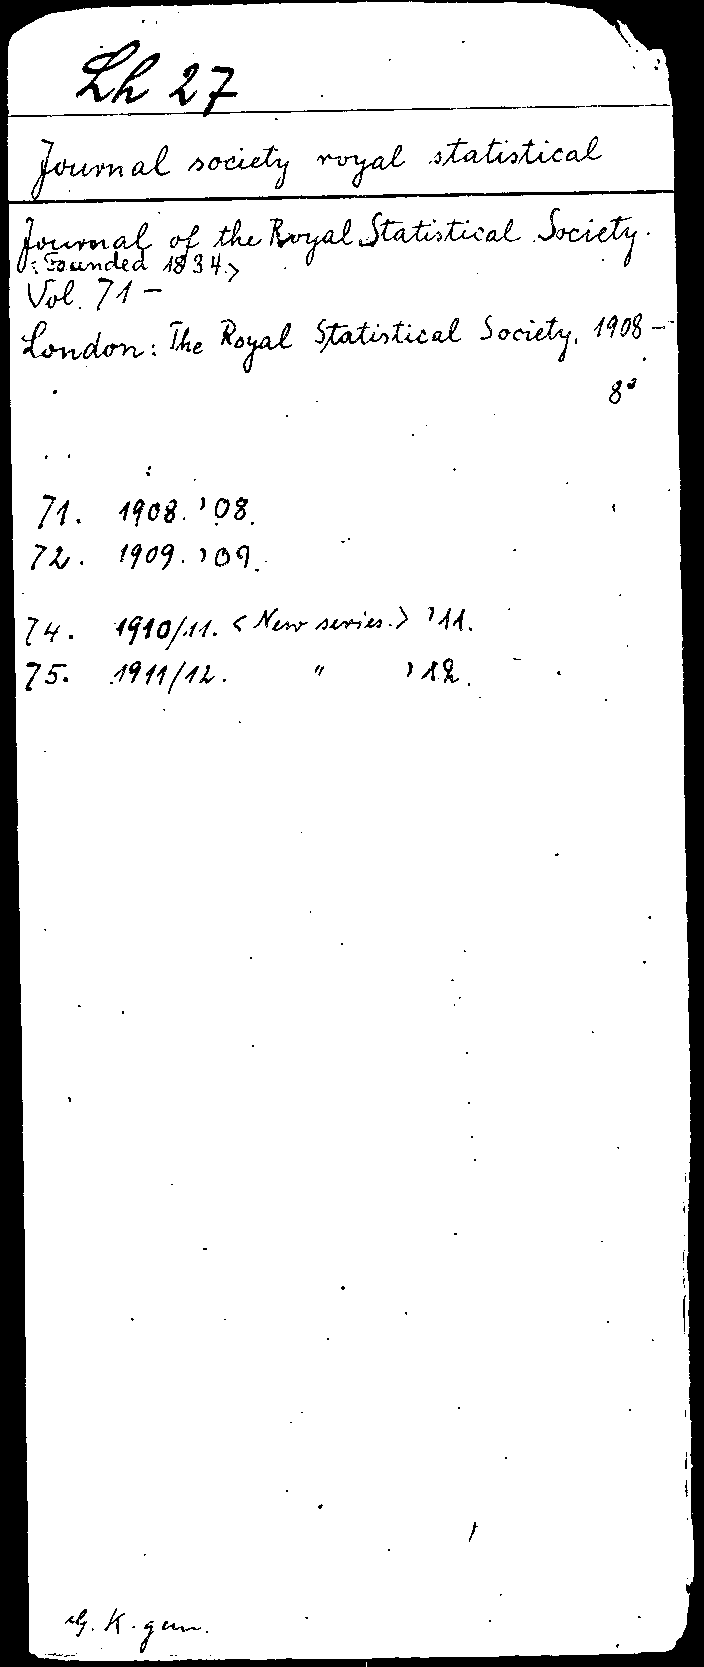 Lh 27
Journal society royal statistical
Journal of the Royal Statistical Society.
<Founded 1834.>
Vol. 71 –
London: The Royal Statistical Society, 1908 –
8°
71. 1908. '08.
72. 1909. '09.
74. 1910/11. <New series.> '11.
75. 1911/12. " '12.
K. gen.